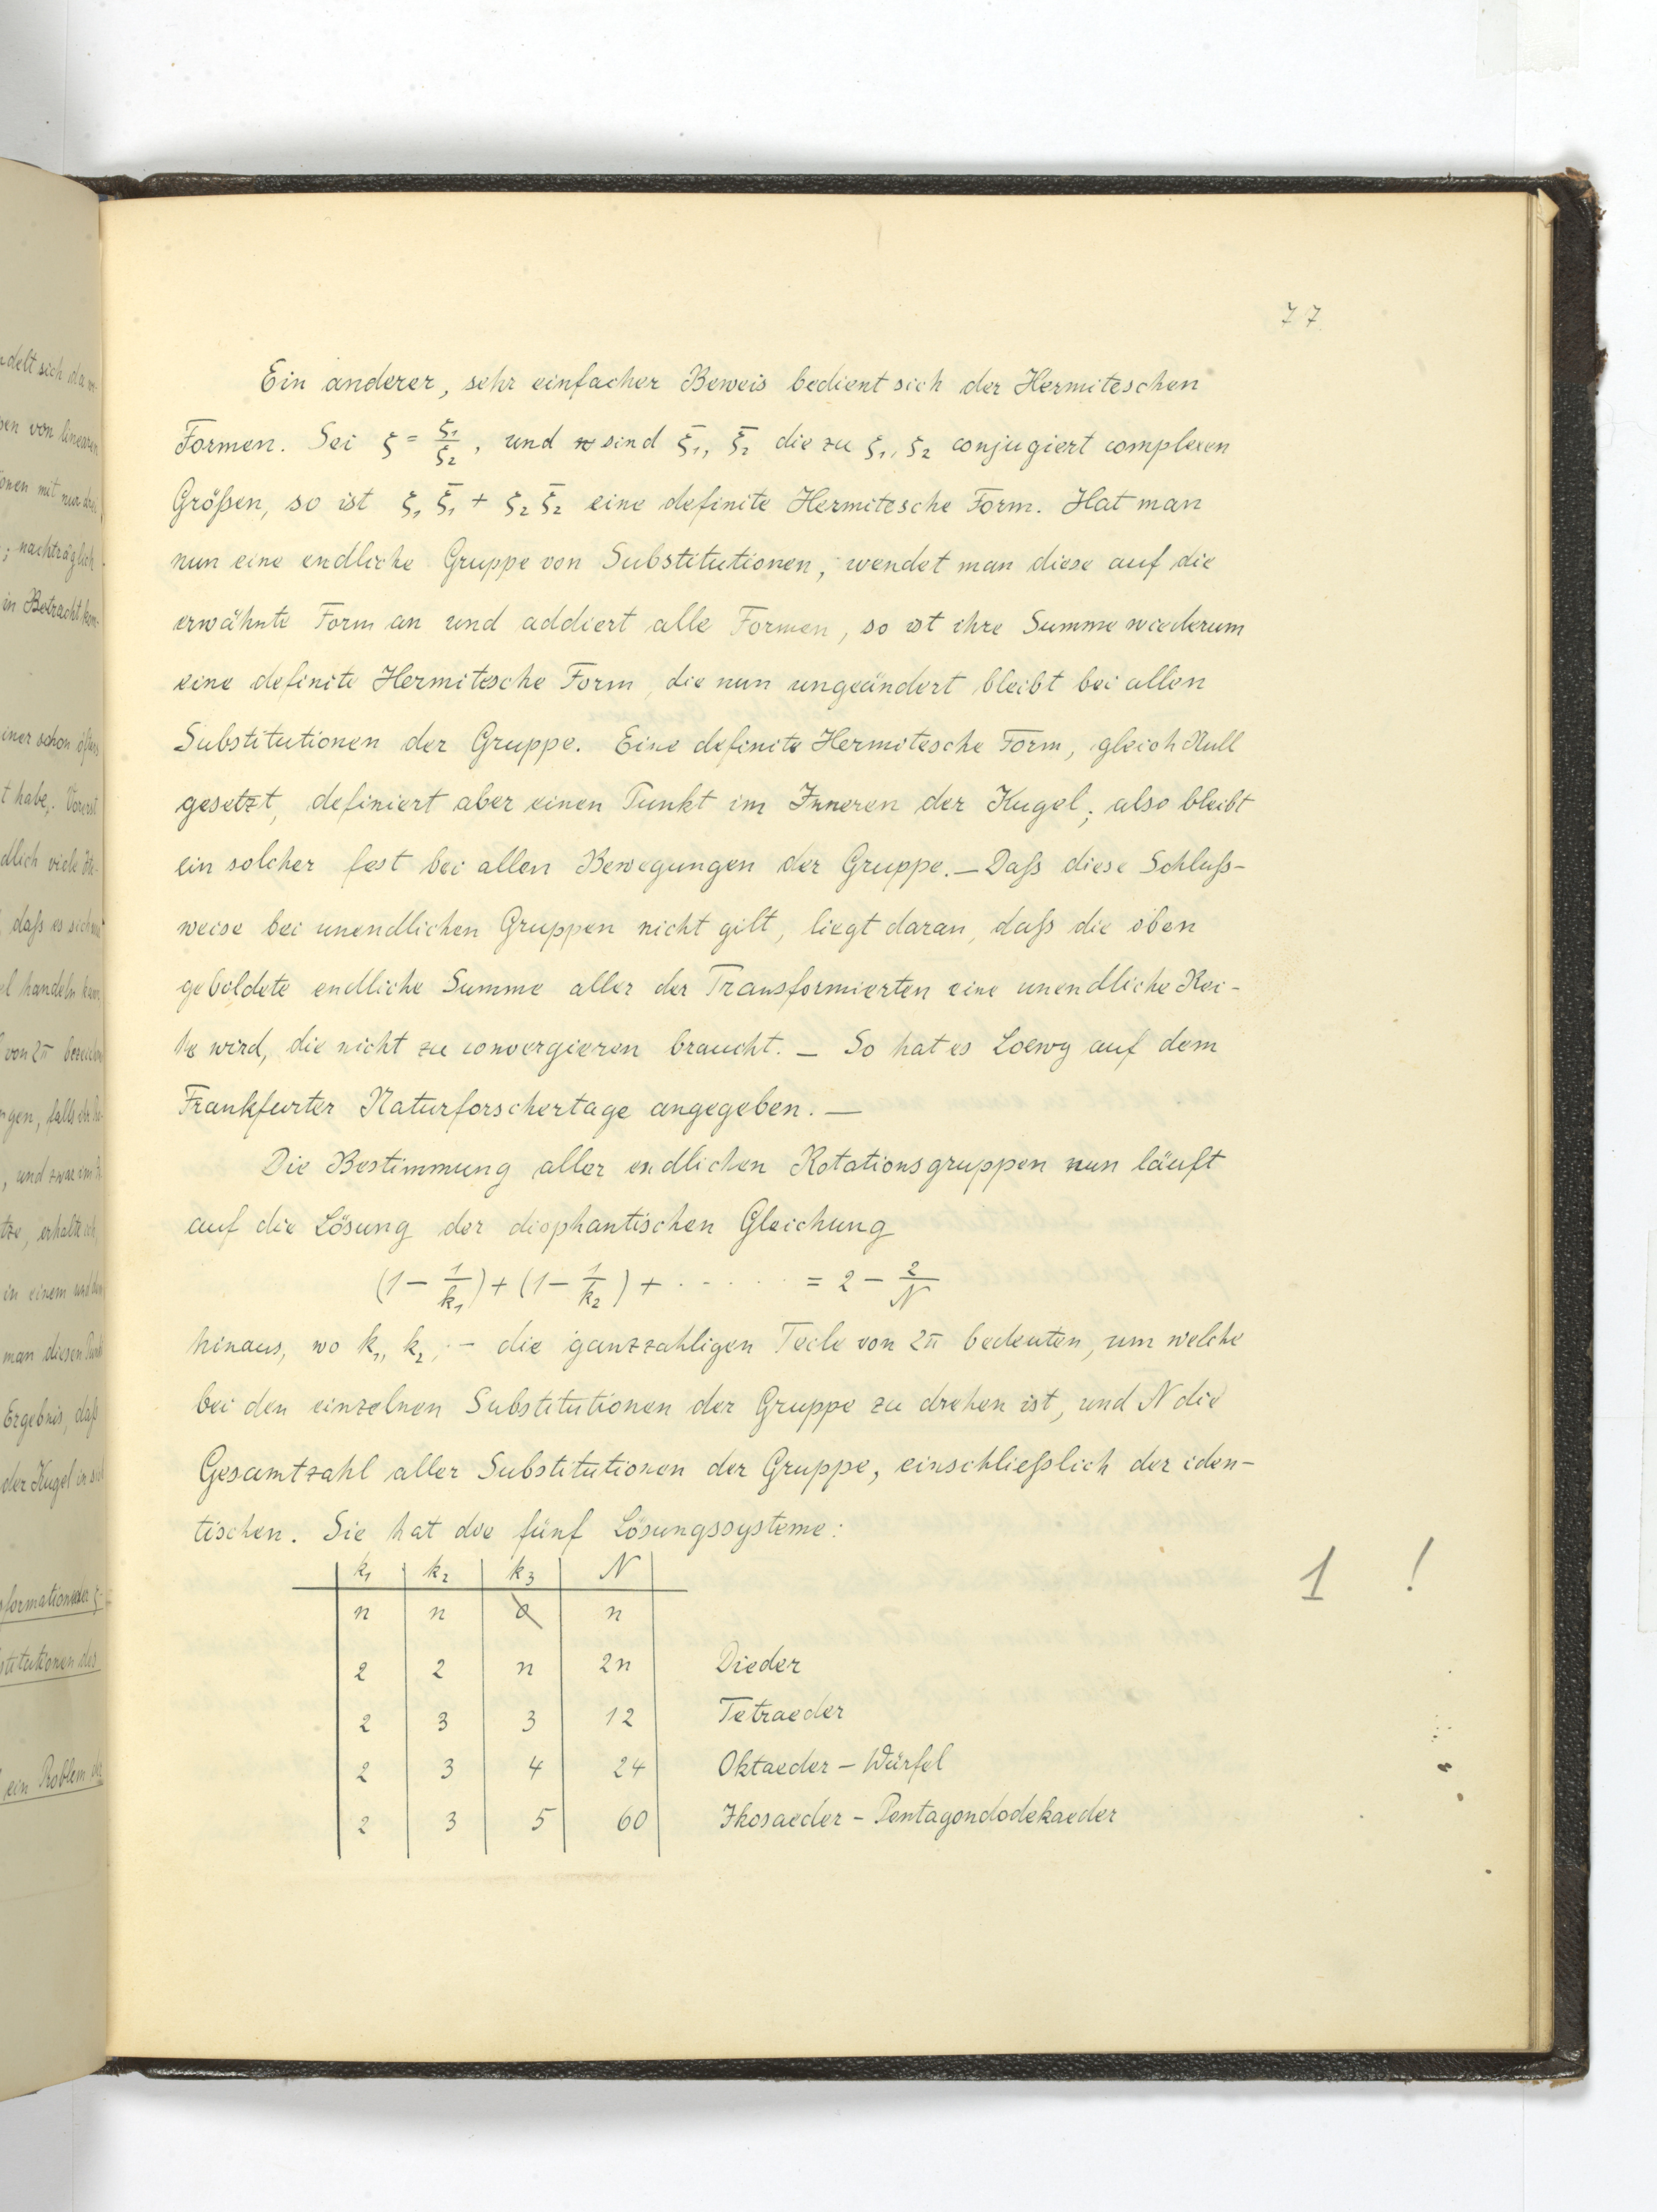 77
Ein anderer, sehr einfacher Beweis bedient sich der Hermiteschen
Formen. Sei ζ = ζ₁/ζ₂, und sind ζ̄₁, ζ̄₂ die zu ζ₁, ζ₂ conjugiert complexen
Größen, so ist ζ₁ ζ̄₁ + ζ₂ ζ̄₂ eine definite Hermitesche Form. Hat man
nun eine endliche Gruppe von Substitutionen, wendet man diese auf die
erwähnte Form an und addiert alle Formen, so ist ihre Summe wiederum
eine definite Hermitesche Form, die nun ungeändert bleibt bei allen
Substitutionen der Gruppe. Eine definite Hermitesche Form, gleich Null
gesetzt, definiert aber einen Punkt im Inneren der Kugel; also bleibt
ein solcher fest bei allen Bewegungen der Gruppe. — Daß diese Schluß-
weise bei unendlichen Gruppen nicht gilt, liegt daran, daß die oben
gebildete endliche Summe aller der Transformierten eine unendliche Rei-
he wird, die nicht zu convergieren braucht. — So hat es Loewy auf dem
Frankfurter Naturforschertage angegeben. —
Die Bestimmung aller endlichen Rotationsgruppen nun läuft
auf die Lösung der diophantischen Gleichung
(1 − 1/k₁) + (1 − 1/k₂) + · · · · · = 2 − 2/N
hinaus, wo k₁, k₂, ·– die ganzzahligen Teile von 2π bedeuten, um welche
bei den einzelnen Substitutionen der Gruppe zu drehen ist, und N die
Gesamtzahl aller Substitutionen der Gruppe, einschließlich der iden-
tischen. Sie hat die fünf Lösungssysteme:
k₁ k₂ k₃ N
1 !
n n 0 n
2 2 n 2n Dieder
2 3 3 12 Tetraeder
2 3 4 24 Oktaeder – Würfel
2 3 5 60 Ikosaeder – Pentagondodekaeder